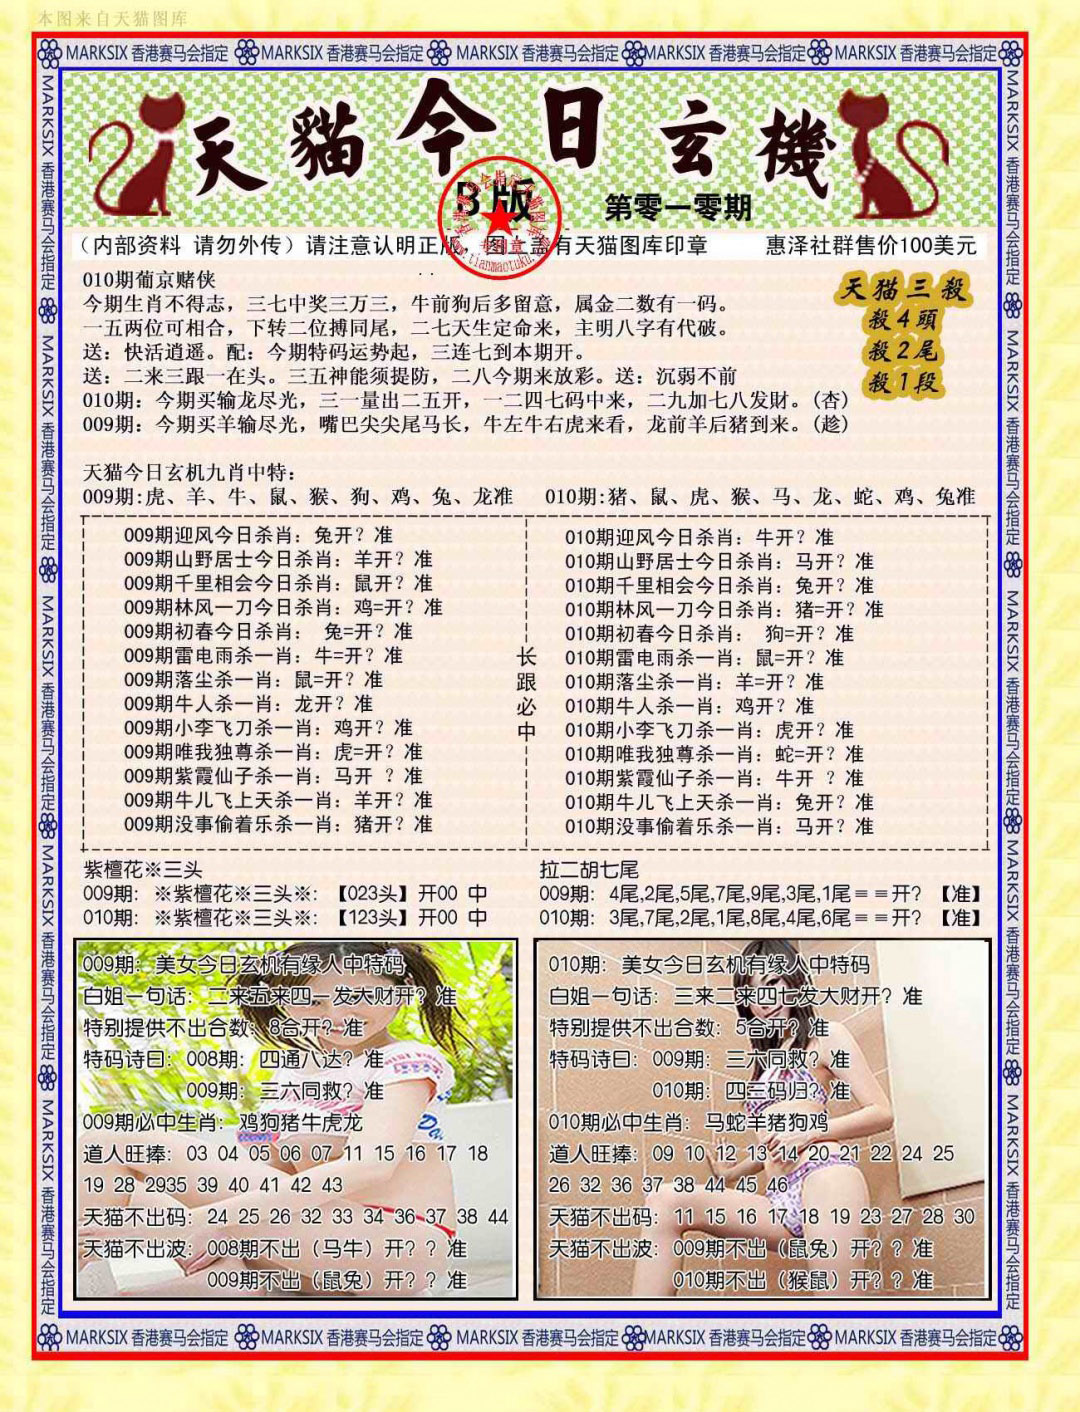 本图来自天猫图库
MARKSIX 香港赛马会指定 MARKSIX 香港赛马会指定 MARKSIX 香港赛马会指定 MARKSIX 香港赛马会指定 MARKSIX 香港赛马会指定
天貓今日玄機
B版
第零一零期
（内部资料 请勿外传）请注意认明正版，图上盖有天猫图库印章 惠泽社群售价100美元
www.tianmaotuku.com
010期葡京赌侠
今期生肖不得志，三七中奖三万三，牛前狗后多留意，属金二数有一码。
一五两位可相合，下转二位搏同尾，二七天生定命来，主明八字有代破。
送：快活逍遥。配：今期特码运势起，三连七到本期开。
送：二来三跟一在头。三五神能须提防，二八今期来放彩。送：沉弱不前
010期：今期买输龙尽光，三一量出二五开，一二四七码中来，二九加七八发财。(杏)
009期：今期买羊输尽光，嘴巴尖尖尾马长，牛左牛右虎来看，龙前羊后猪到来。(趁)
天猫三殺
殺4頭
殺2尾
殺1段
天猫今日玄机九肖中特：
009期:虎、羊、牛、鼠、猴、狗、鸡、兔、龙准 010期:猪、鼠、虎、猴、马、龙、蛇、鸡、兔准
009期迎风今日杀肖：兔开？准
009期山野居士今日杀肖：羊开？准
009期千里相会今日杀肖：鼠开？准
009期林风一刀今日杀肖：鸡=开？准
009期初春今日杀肖： 兔=开？准
009期雷电雨杀一肖：牛=开？准
009期落尘杀一肖：鼠=开？准
009期牛人杀一肖：龙开？准
009期小李飞刀杀一肖：鸡开？准
009期唯我独尊杀一肖：虎=开？准
009期紫霞仙子杀一肖：马开 ？准
009期牛儿飞上天杀一肖：羊开？准
009期没事偷着乐杀一肖：猪开？准
长跟必中
010期迎风今日杀肖：牛开？准
010期山野居士今日杀肖：马开？准
010期千里相会今日杀肖：兔开？准
010期林风一刀今日杀肖：猪=开？准
010期初春今日杀肖： 狗=开？准
010期雷电雨杀一肖：鼠=开？准
010期落尘杀一肖：羊=开？准
010期牛人杀一肖：鸡开？准
010期小李飞刀杀一肖：虎开？准
010期唯我独尊杀一肖：蛇=开？准
010期紫霞仙子杀一肖：牛开 ？准
010期牛儿飞上天杀一肖：兔开？准
010期没事偷着乐杀一肖：马开？准
紫檀花※三头
009期：※紫檀花※三头※：【023头】开00 中
010期：※紫檀花※三头※：【123头】开00 中
拉二胡七尾
009期：4尾,2尾,5尾,7尾,9尾,3尾,1尾＝＝开？【准】
010期：3尾,7尾,2尾,1尾,8尾,4尾,6尾＝＝开？【准】
009期：美女今日玄机有缘人中特码
白姐一句话：二来五来四一发大财开？准
特别提供不出合数：8合开？准
特码诗曰：008期：四通八达？准
009期：三六同救？准
009期必中生肖：鸡狗猪牛虎龙
道人旺捧：03 04 05 06 07 11 15 16 17 18
19 28 2935 39 40 41 42 43
天猫不出码：24 25 26 32 33 34 36 37 38 44
天猫不出波：008期不出（马牛）开？？准
009期不出（鼠兔）开？？准
010期：美女今日玄机有缘人中特码
白姐一句话：三来二来四七发大财开？准
特别提供不出合数：5合开？准
特码诗曰：009期：三六同救？准
010期：四三码归？准
010期必中生肖：马蛇羊猪狗鸡
道人旺捧：09 10 12 13 14 20 21 22 24 25
26 32 36 37 38 44 45 46
天猫不出码：11 15 16 17 18 19 23 27 28 30
天猫不出波：009期不出（鼠兔）开？？准
010期不出（猴鼠）开？？准
MARKSIX 香港赛马会指定 MARKSIX 香港赛马会指定 MARKSIX 香港赛马会指定 MARKSIX 香港赛马会指定 MARKSIX 香港赛马会指定